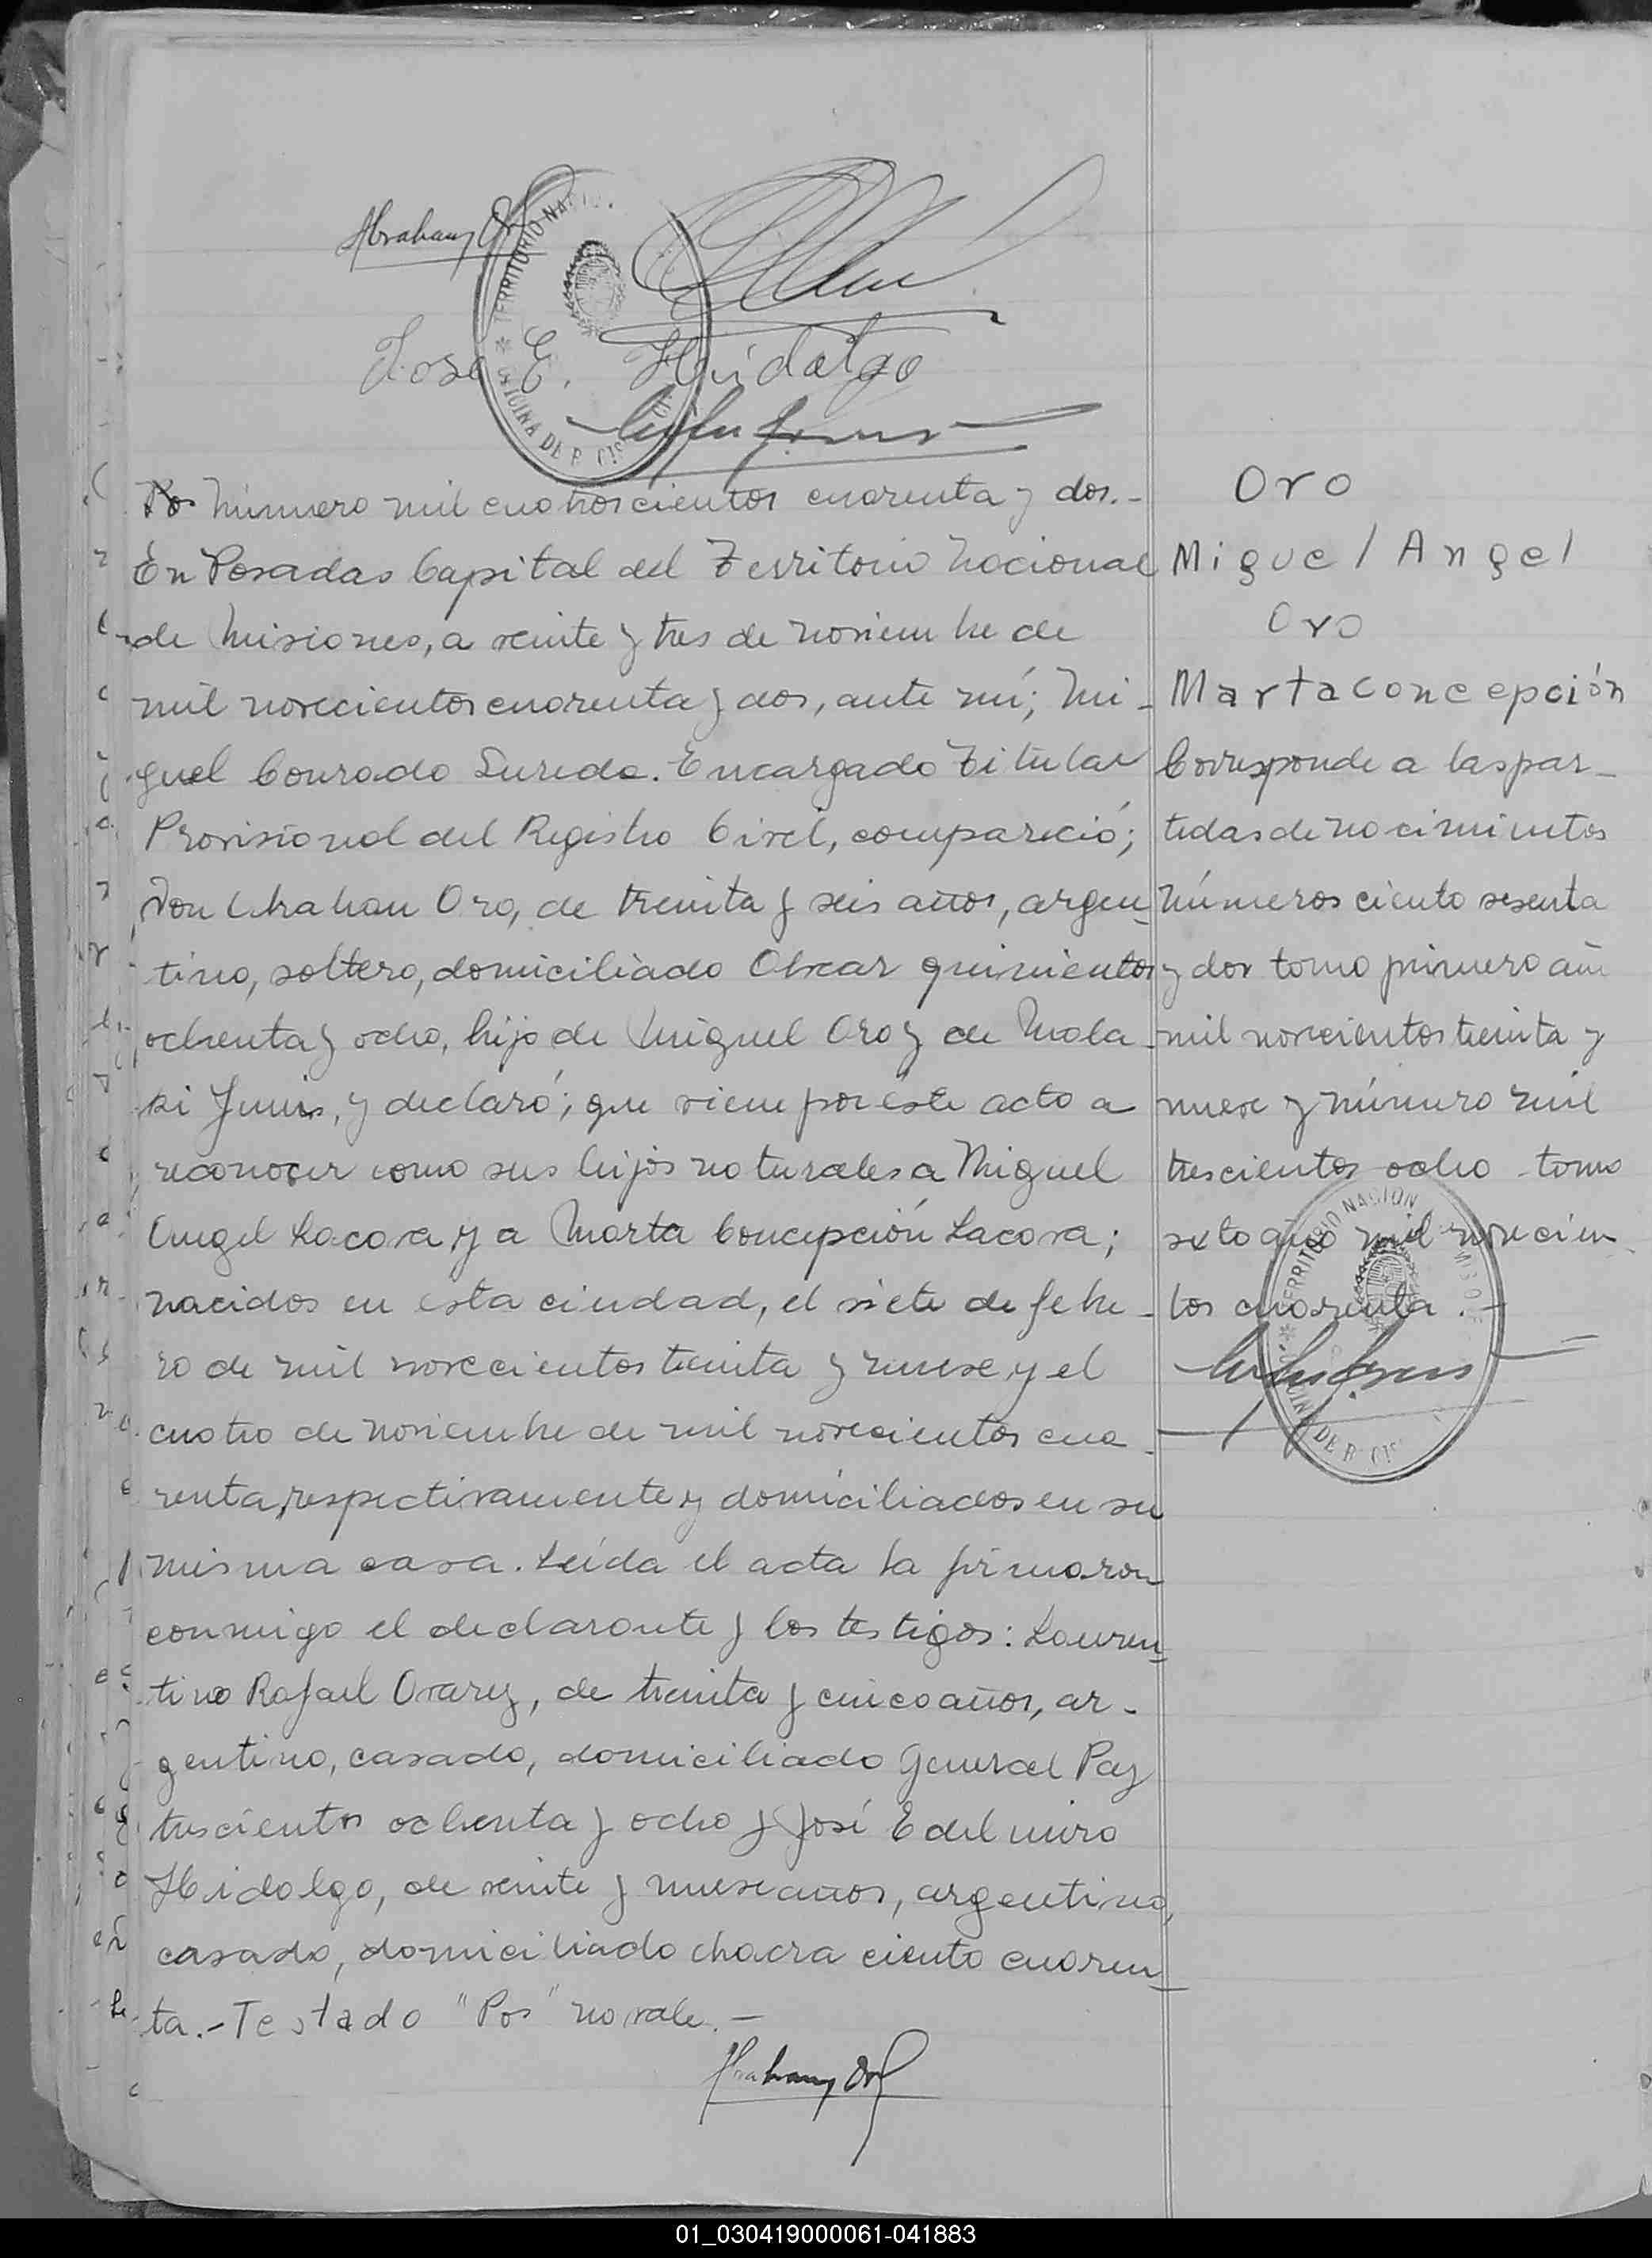 Abraham Oro
TERRITORIO NACIO
José E. Hidalgo
OFICINA DE
Pos Número mil cuatroscientos cuarenta y dos.-
En Posadas Capital del Territorio Nacional
de Misiones, a veinte y tres de noviembre de
mil novecientos cuarenta y dos, ante mí; Mi-
guel Conrado Sureda. Encargado Titular
Provisional del Registro Civil, compareció;
Don Abrahan Oro, de treinta y seis años, argen-
tino, soltero, domiciliado Alvear quinientos
ochenta y ocho, hijo de Miguel Oro y de
y declaró; que viene por éste acto a
reconocer como sus hijos naturales a Miguel
Angel Lacova y a Marta Concepción Lacova;
nacidos en esta ciudad, el siete de febre-
ro de mil novecientos treinta y nueve y el
cuatro de noviembre de mil novecientos cua-
renta, respectivamente y domiciliados en su
misma casa. Leída el acta la firmaron
conmigo el declarante y los testigos: Lauren-
tino Rafael , de treinta y cinco años, ar-
gentino, casado, domiciliado General Paz
trescientos ochenta y ocho y José Edelmiro
Hidalgo, de veinte y nueve años, argentino,
casado, domiciliado chacra ciento cuaren-
ta.- Testado "Pos" no vale.-
Abraham Oro
Oro
Miguel Angel
Oro
Marta Concepción
Corresponde a las par-
tidas de nacimientos
números ciento sesenta
y dos tomo primero año
mil novecientos treinta y
nueve y número mil
trescientos ocho tomo
sexto año mil novecien-
tos cuarenta.-
TERRITORIO NACION
01_030419000061-041883